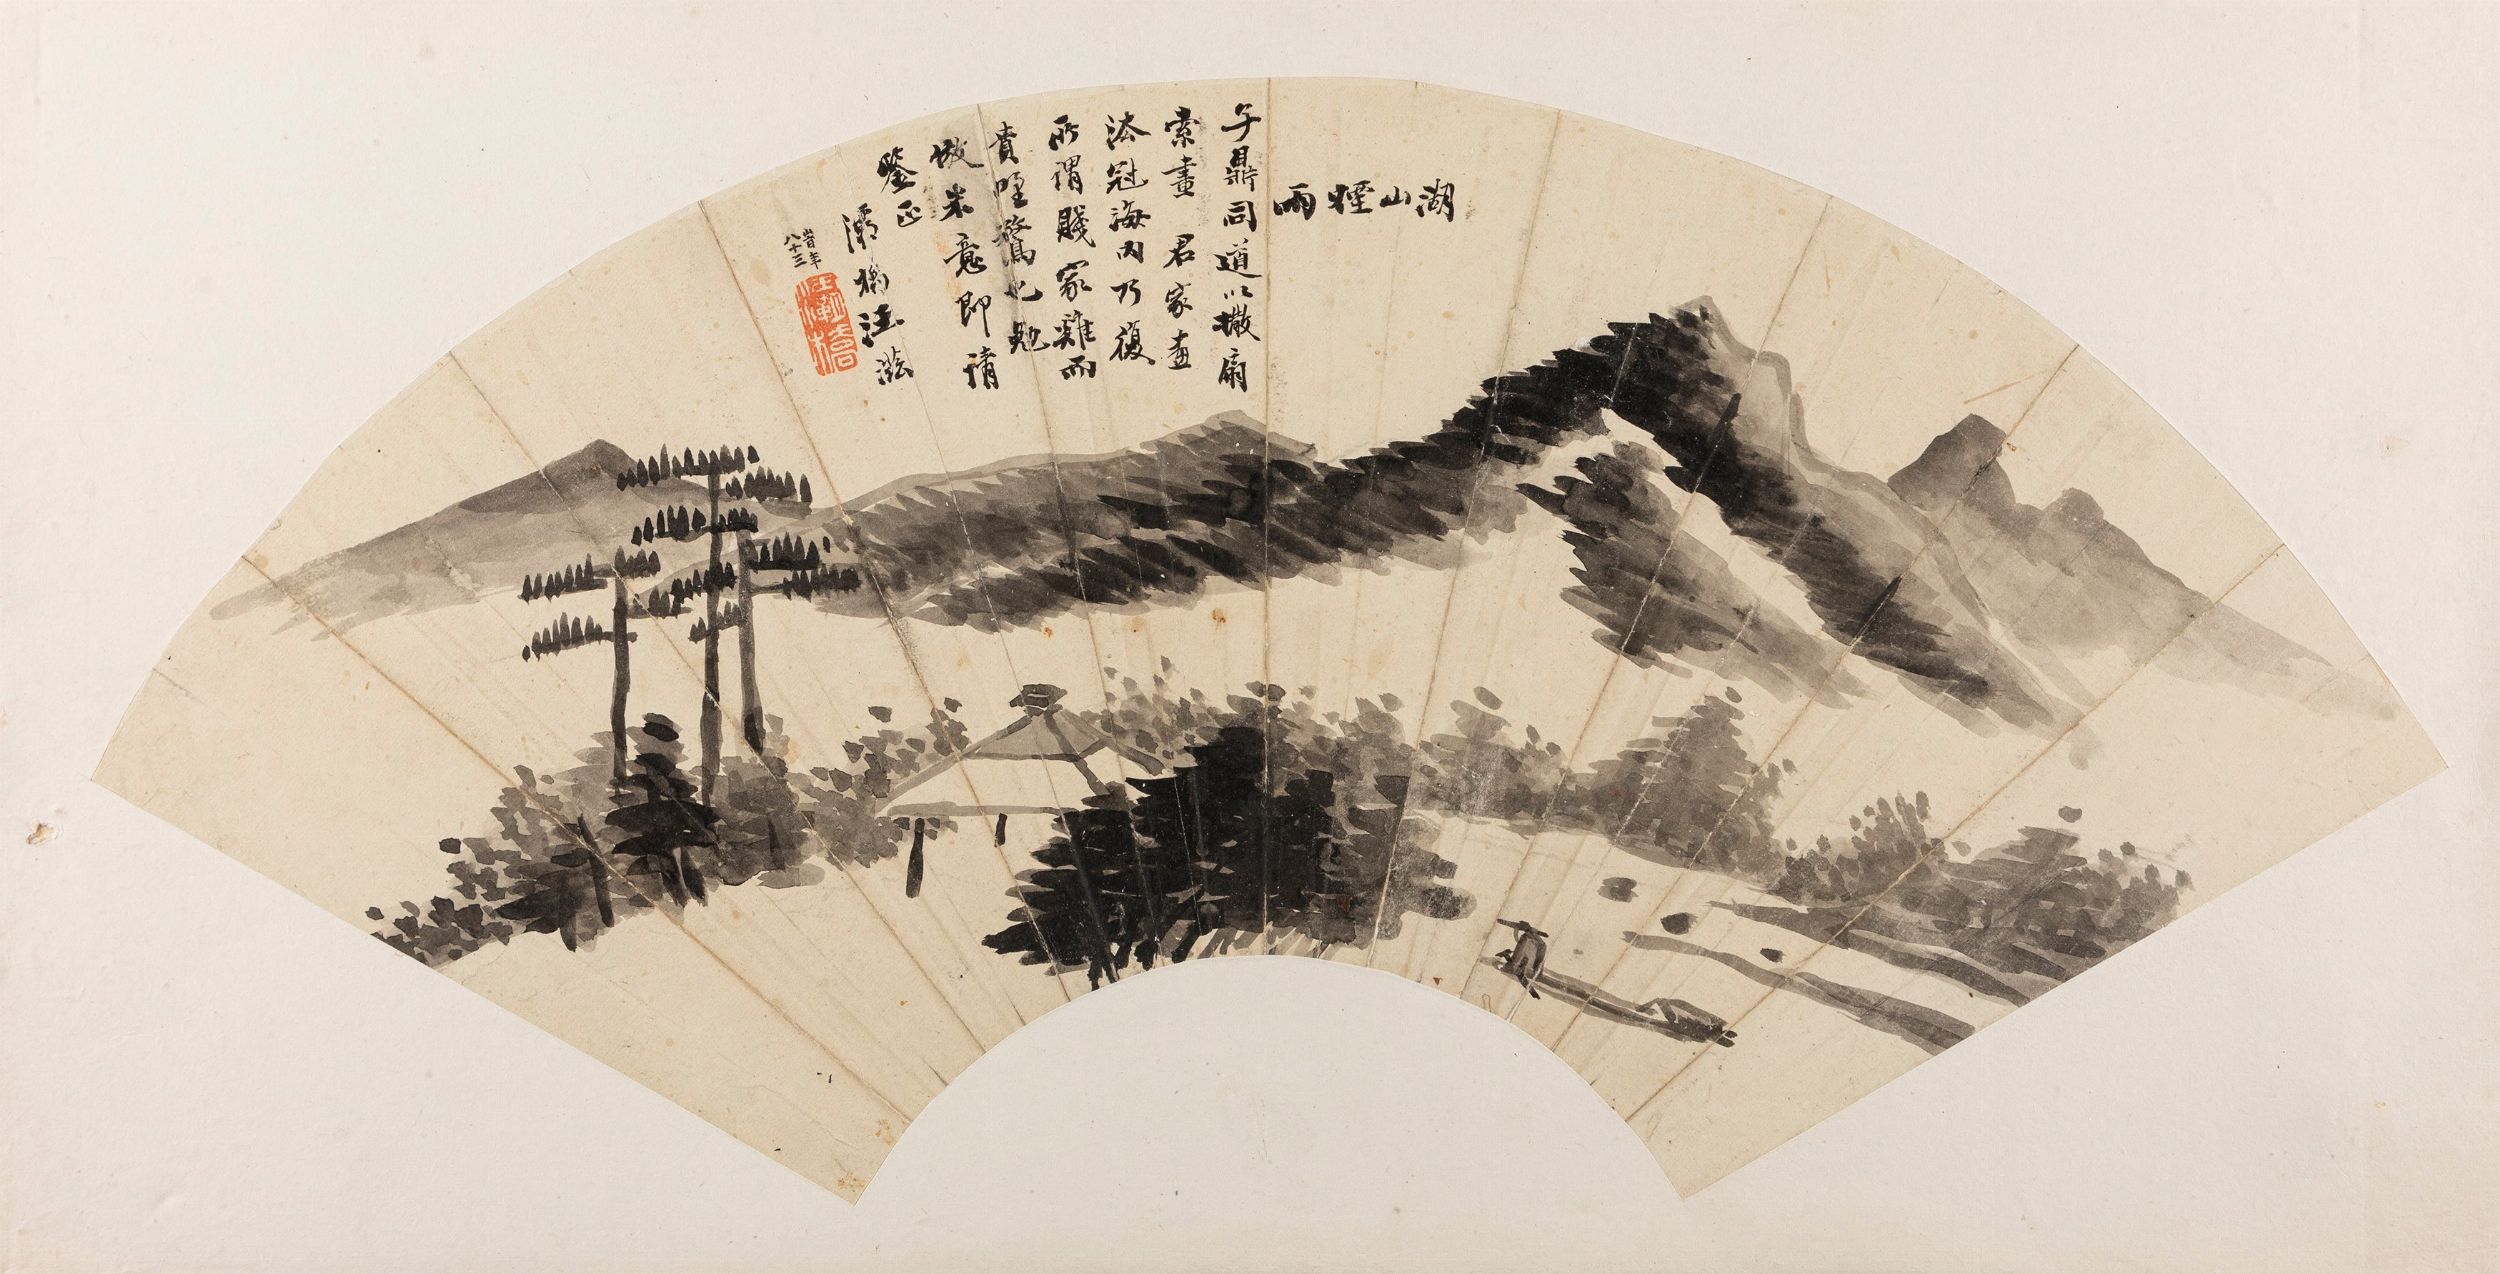 湖山煙雨
子鼎同道以撒扇
索畫 君家畫
法冠海內乃復
所謂賤家雞而
貴野鶩也勉
倣米意即請
鑒正
汪
時年
八十三